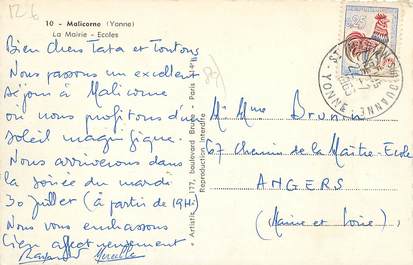 126
10 - Malicorne (Yonne)
La Mairie - Ecoles
Bien chers Tata et Tontons
Nous passons un excellent
séjour à Malicorne
où nous profitons d'un
soleil magnifique.
Nous arriverons dans
la soirée du mardi
30 juillet (à partir de 19H)
Nous vous embrassons
bien affectueusement
Raymond Mireille
« Artistic », 177, boulevard Brune - Paris 14e
Reproduction interdite
0,25
YONNE
Mr Mme Brunin
67 Chemin de la Maître-Ecole
ANGERS
(Maine et Loire)